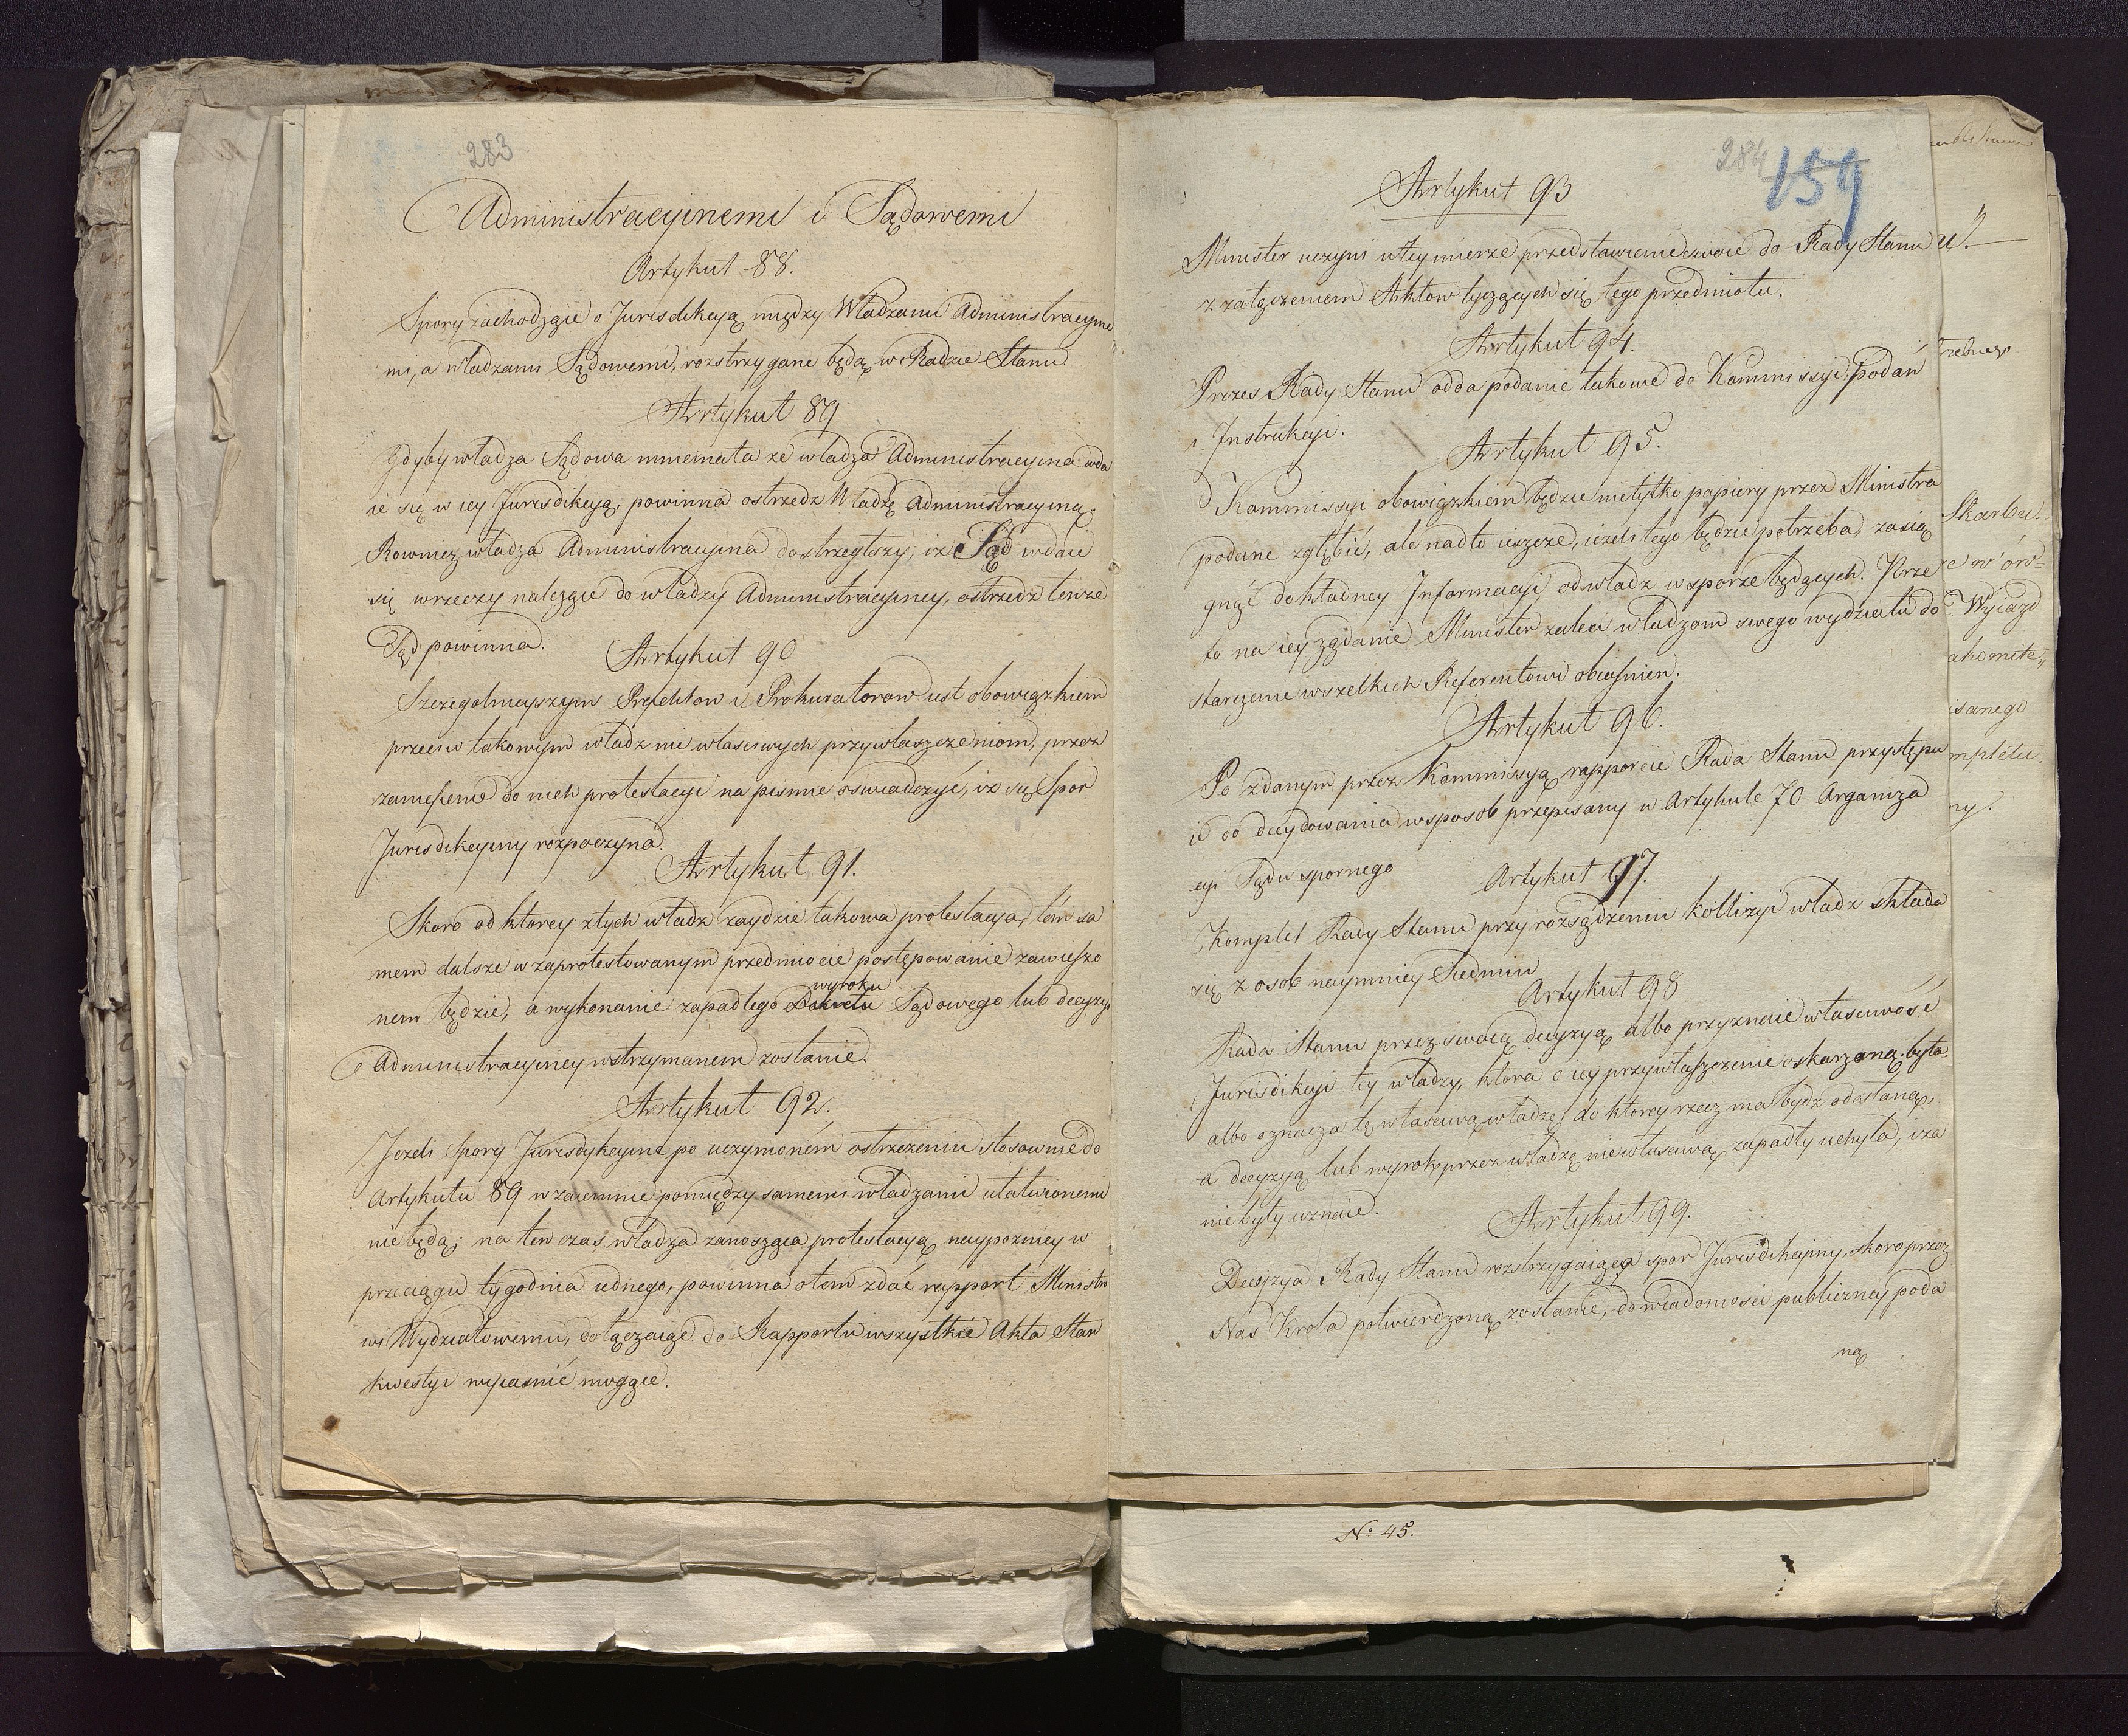 283
Administracyinemi i Sądowemi
Artykuł 88.
Spory zachodzące o Jurisdikcyą między Władzami Administracyine
mi, a władzami Sądowemi, rozstrzygane będą w Radzie Stanu
Artykuł 89
Gdyby władza Sądowa mniemała że władza Administracyina wda
ie się w iey Jurisdikcyą, powinna ostrzedz Władzę Administracyiną.
Rowniez władza Administracyina dostrzegłszy, iż Sąd wdaie
się w rzeczy należące do władzy Administracyiney, ostrzedz tenże
Sąd powinna.
Artykuł 90
Szczegolnieyszym Prefektow i Prokuratorow iest obowiązkiem
przeciw takowym władz nie własciwych przywłaszczeniom, przez
zaniesienie do nich protestacyi na pismie oswiadczyć, iz się Spor
Jurisdikcyiny rozpoczyna.
Artykuł 91.
Skoro od ktorey z tych władz zaydzie takowa protestacya, tem sa
mem dalsze w zaprotestowanym przedmiocie postępowanie zawieszo
wyroku
nem będzie, a wykonanie zapadłego Dekretu Sądowego lub decyzyi
Administracyiney wstrzymanem zostanie.
Artykuł 92.
Jezeli Spory Jurisdykcyine po uczynioném ostrzezeniu stosownie do
Artykułu 89 wzaiemnie pomiędzy samemi władzami ułatwionemi
nie będą; na ten czas władza zanosząca protestacyą naypozniey w
przeciągu tygodnia iednego, powinna o tem zdać rapport Ministro
wi Wydziałowemu, dołączaiąc do Rapportu wszystkie Akta Stan
kwestyi wyiasnić mogące.
284
159
Artykuł 93
Minister uczyni w tey mierze przedstawienie swoie do Rady Stanu
z załączeniem Aktow tyczących się tego przedmiotu.
Artykuł 94.
Prezes Rady Stanu odda podanie takowe do Kommissyi podań
i Instrukcyi.
Artykuł 95.
Kommissyi obowiązkiem będzie nietylko papiery przez Ministra
podane zgłębić, ale nadto ieszcze, iezeli tego będzie potrzeba, zasią
gnąć dokładney Informacyi od władz w sporze będących. Prze
to na iey żądanie Minister zaleci władzom swego wydziału do
starczenie wszelkich Referentowi obiasnien.
Artykuł 96.
Po zdanym przez Kommissyą rapporcie Rada Stanu przystępu
ie do decydowania w sposob przepisany w Artykule 70 Organiza
cyi Sądu spornego
Artykuł 97.
Komplet Rady Stanu przy rozsądzeniu kollizyi władz składa
się z osob naymniey Siedmiu
Artykuł 98
Rada Stanu przez swoią decyzyą albo przyznaie własciwość
Jurisdikcyi tey władzy, ktora o iey przywłaszczenie oskarzoną była
albo oznacza tę własciwą władzę, do ktorey rzecz ma bydź odesłaną,
a decyzyą lub wyrok przez władzę niewłasciwą zapadły uchyla, i za
nie były uznaie.
Artykuł 99.
Decyzya Rady Stanu rozstrzygaiąca spor Jurisdikcyiny, skoro przez
Nas Krola potwierdzoną zostanie, do wiadomosci publiczney poda
ną
trzebnego
Skarbu.
Wyiazd
isanego
mpletu.
ny.
No 45.